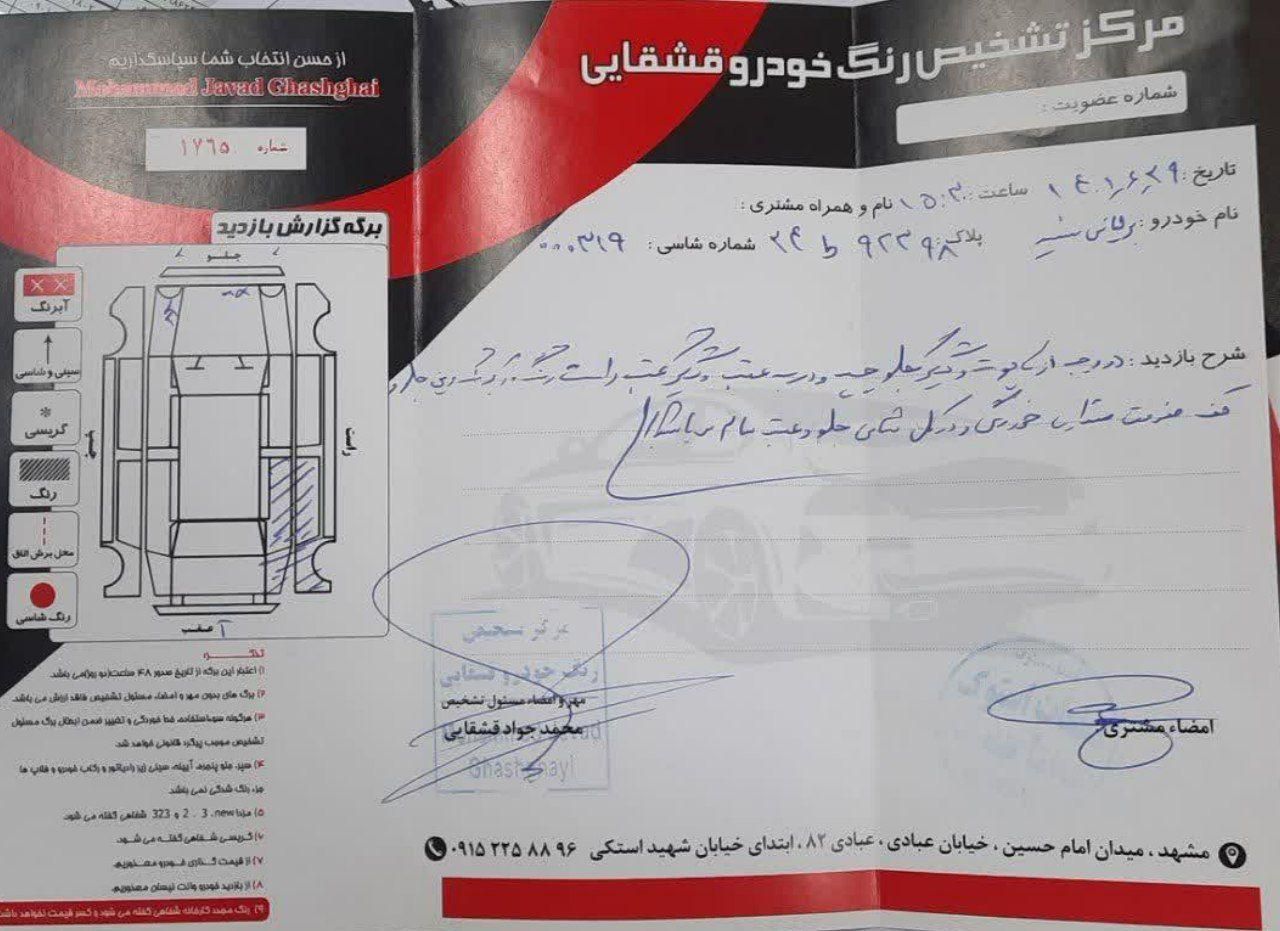 مرکز تشخیص رنگ خودرو قشقایی
شماره عضویت :
از حسن انتخاب شما سپاسگذاریم
Mohammad Javad Ghashghai
شماره ۱۷۶۵
تاریخ : ۱۴۰۱٫۶٫۲۹ ساعت : ۱۵:۳۰ نام و همراه مشتری :
نام خودرو : پلاک : ۹۲۳۹۸ ط ۳۴ شماره شاسی : ۰۰۰۳۱۹
برگه گزارش بازدید
جلو
چپ
راست
عقب
آبرنگ
سینی و شاسی
گریسی
رنگ
محل برش اتاق
رنگ شاسی
شرح بازدید : در وجه از کاپوت و گلگیر جلو چپ و درب عقب و گلگیر عقب راست رنگ
کف و در کل شاسی جلو و عقب سالم می باشد
مرکز تشخیص
رنگ خودرو قشقایی
مهر و امضاء مسئول تشخیص
محمد جواد قشقایی
Ghashghayi
امضاء مشتری :
تذکر
۱) اعتبار این برگه از تاریخ صدور ۴۸ ساعت(دو روز)می باشد.
۲) برگ های بدون مهر و امضاء مسئول تشخیص فاقد ارزش می باشد.
۳) هرگونه سوءاستفاده، خط خوردگی و تغییر ضمن ابطال برگ مسئول
تشخیص موجب پیگرد قانونی خواهد شد.
۴) سپر، جلو پنجره، آیینه، سینی زیر رادیاتور و رکاب خودرو و قلاب ها
جزء رنگ شدگی نمی باشد
۵) مزدا new، 3 ، 2 و 323 شفاهی گفته می شود.
۶) گریسی شفاهی گفته می شود.
۷) از قیمت گذاری خودرو معذوریم.
۸) از بازدید خودرو وانت نیسان معذوریم.
۹) رنگ مجدد کارخانه شفاهی گفته می شود و کسر قیمت نخواهد داشت
مشهد ، میدان امام حسین ، خیابان عبادی ، عبادی ۸۲ ، ابتدای خیابان شهید استکی ۰۹۱۵ ۲۲۵ ۸۸ ۹۶